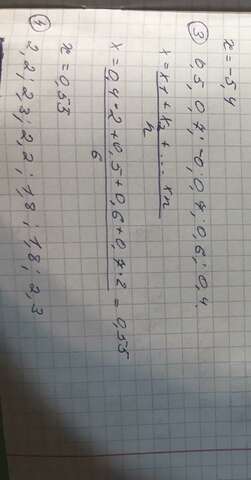 x = -5,4
③ 0,5; 0,4; -0; 0,7; 0,6; 0,4.
x = x₁ + x₂ + ... xn
n
x = 0,4·2 + 0,5 + 0,6 + 0,7·2 = 0,55
6
x = 0,55
④
2,2; 2,3; 2,2; 1,8; 1,8; 2,3